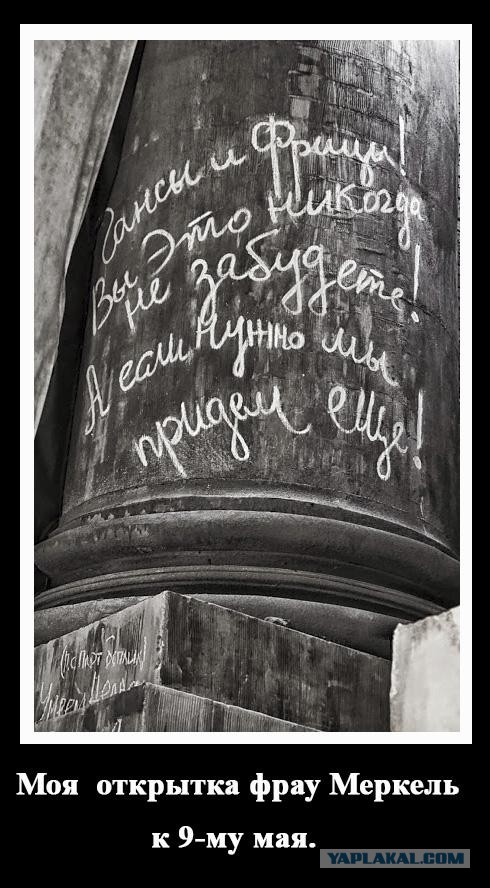 Гансы и Фрицы!
Вы Это никогда
не забудете!
А если Нужно мы
придем еще!
Моя открытка фрау Меркель
к 9-му мая.
YAPLAKAL.COM